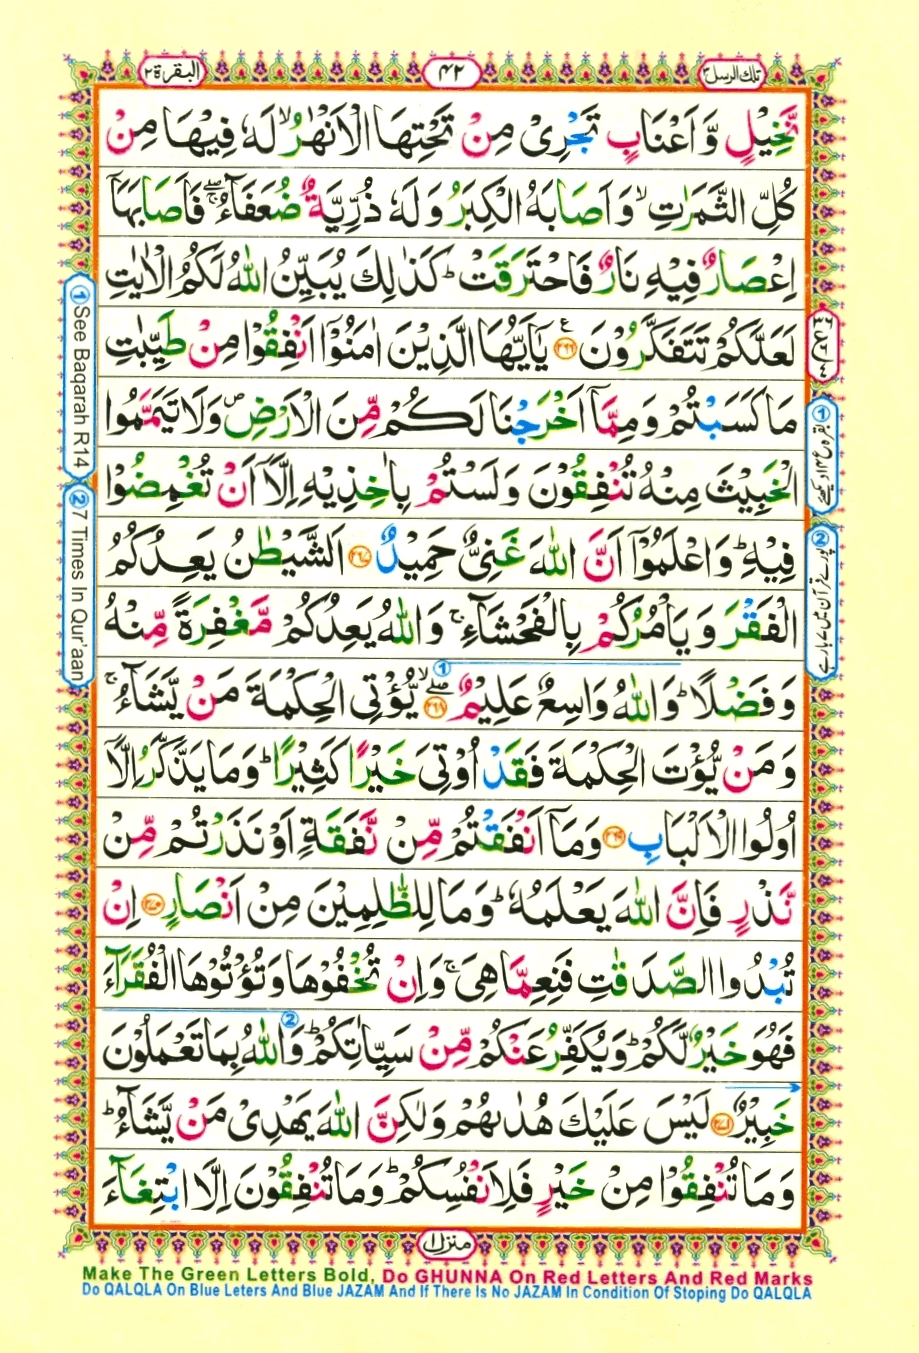 تلك الرسل ٣
٤٢
البقرة ٢
نَّخِيْلٍ وَّ اَعْنَابٍ تَجْرِىْ مِنْ تَحْتِهَا الْاَنْهٰرُ ۙ لَهٗ فِيْهَا مِنْ
كُلِّ الثَّمَرٰتِ ۙ وَاَصَابَهُ الْكِبَرُ وَلَهٗ ذُرِّيَّةٌ ضُعَفَآءُ ۖۚ فَاَصَابَهَآ
اِعْصَارٌ فِيْهِ نَارٌ فَاحْتَرَقَتْ ؕ كَذٰلِكَ يُبَيِّنُ اللّٰهُ لَكُمُ الْاٰيٰتِ
لَعَلَّكُمْ تَتَفَكَّرُوْنَ ﴿۲۶۶﴾ ع يٰۤاَيُّهَا الَّذِيْنَ اٰمَنُوْۤا اَنْفِقُوْا مِنْ طَيِّبٰتِ
مَا كَسَبْتُمْ وَمِمَّاۤ اَخْرَجْنَا لَكُمْ مِّنَ الْاَرْضِ ۪ وَلَا تَيَمَّمُوا
الْخَبِيْثَ مِنْهُ تُنْفِقُوْنَ وَلَسْتُمْ بِاٰخِذِيْهِ اِلَّاۤ اَنْ تُغْمِضُوْا
فِيْهِ ؕ وَاعْلَمُوْۤا اَنَّ اللّٰهَ غَنِىٌّ حَمِيْدٌ ﴿۲۶۷﴾ اَلشَّيْطٰنُ يَعِدُكُمُ
الْفَقْرَ وَيَاْمُرُكُمْ بِالْفَحْشَآءِ ۚ وَاللّٰهُ يَعِدُكُمْ مَّغْفِرَةً مِّنْهُ
وَفَضْلًا ؕ وَاللّٰهُ وَاسِعٌ عَلِيْمٌ ﴿۲۶۸﴾ ۖۙ ① يُّؤْتِى الْحِكْمَةَ مَنْ يَّشَآءُ ۚ
وَمَنْ يُّؤْتَ الْحِكْمَةَ فَقَدْ اُوْتِىَ خَيْرًا كَثِيْرًا ؕ وَمَا يَذَّكَّرُ اِلَّاۤ
اُولُوا الْاَلْبَابِ ﴿۲۶۹﴾ وَمَاۤ اَنْفَقْتُمْ مِّنْ نَّفَقَةٍ اَوْ نَذَرْتُمْ مِّنْ
نَّذْرٍ فَاِنَّ اللّٰهَ يَعْلَمُهٗ ؕ وَمَا لِلظّٰلِمِيْنَ مِنْ اَنْصَارٍ ﴿۲۷۰﴾ اِنْ
تُبْدُوا الصَّدَقٰتِ فَنِعِمَّا هِىَ ۚ وَاِنْ تُخْفُوْهَا وَتُؤْتُوْهَا الْفُقَرَآءَ
فَهُوَ خَيْرٌ لَّكُمْ ؕ وَيُكَفِّرُ عَنْكُمْ مِّنْ سَيِّاٰتِكُمْ ؕ ② وَاللّٰهُ بِمَا تَعْمَلُوْنَ
خَبِيْرٌ ﴿۲۷۱﴾ لَيْسَ عَلَيْكَ هُدٰىهُمْ وَلٰكِنَّ اللّٰهَ يَهْدِىْ مَنْ يَّشَآءُ ؕ
وَمَا تُنْفِقُوْا مِنْ خَيْرٍ فَلِاَنْفُسِكُمْ ؕ وَمَا تُنْفِقُوْنَ اِلَّا ابْتِغَآءَ
① See Baqarah R14
② 7 Times In Qur'aan
منزل ١
Make The Green Letters Bold, Do GHUNNA On Red Letters And Red Marks
Do QALQLA On Blue Leters And Blue JAZAM And If There Is No JAZAM In Condition Of Stoping Do QALQLA